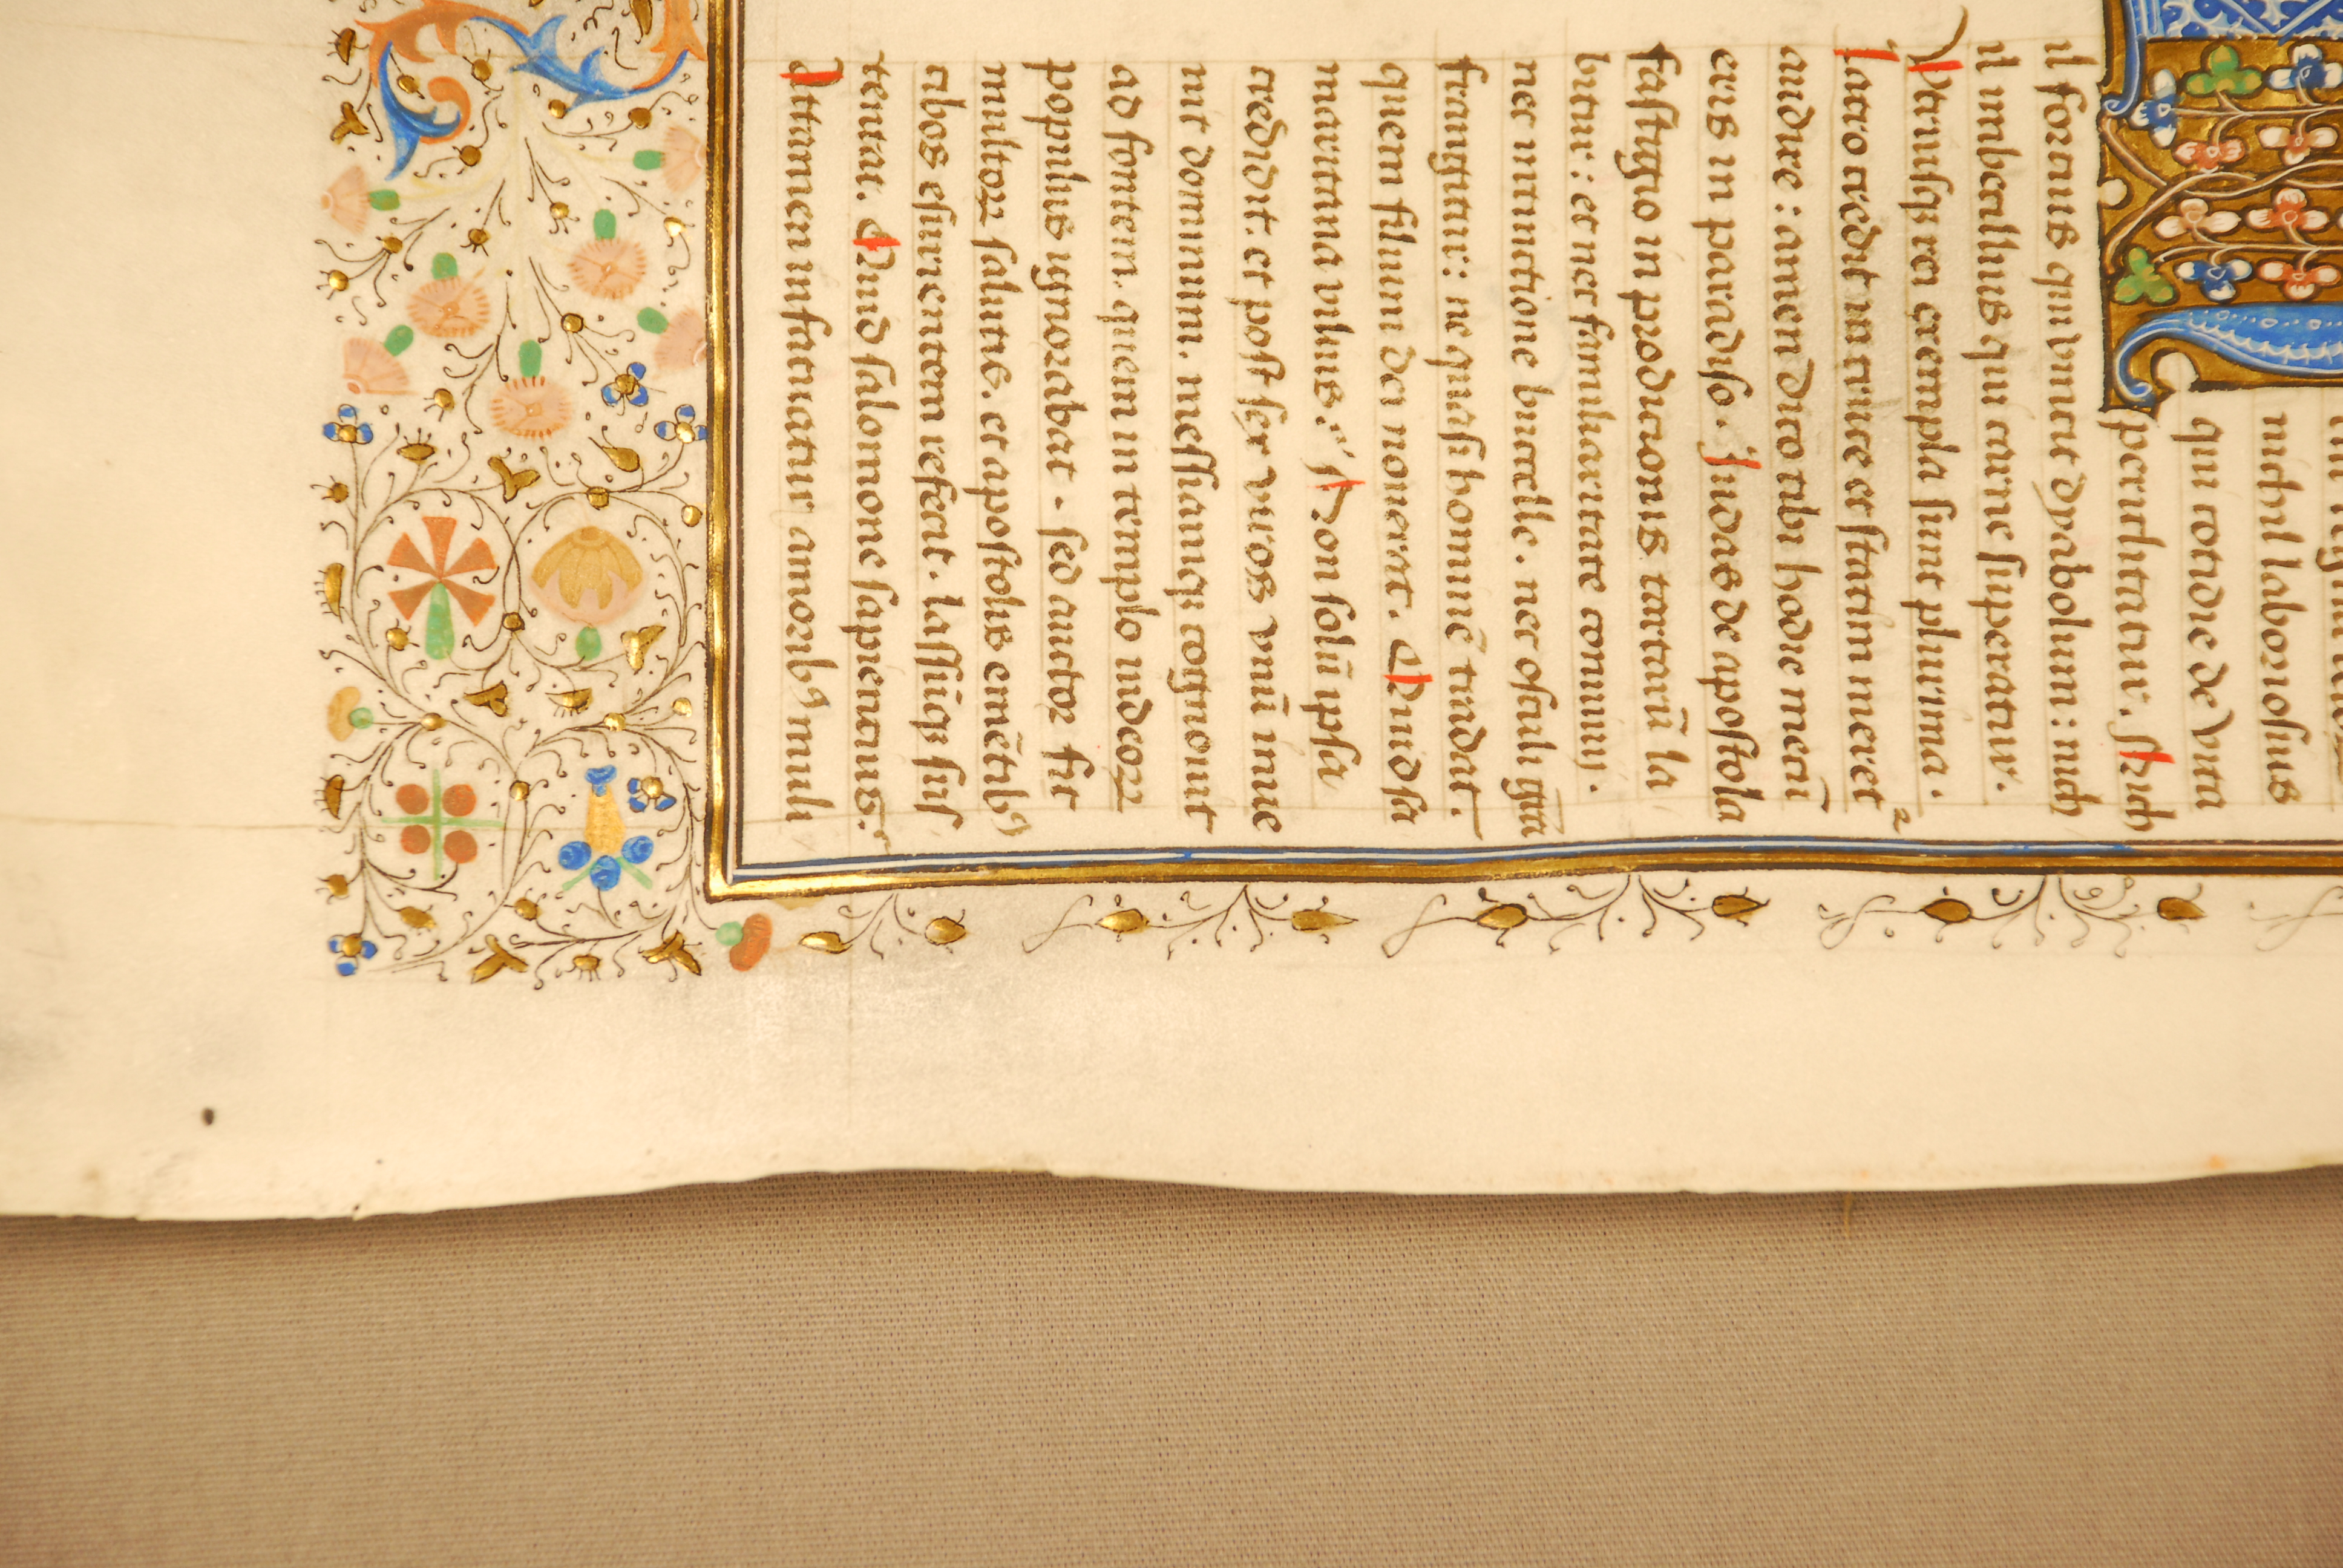 nichil laboriosius
qui cotidie de vita
periclitatur. Nich
il fortius qui vincit dyabolum: nich
il imbecillius qui carne superatur.
Vtriusqꝫ rei exempla sunt plurima.
Latro credit in cruce et statim meret᷑
audire: amen dico tibi hodie mecū
eris in paradiso. Judas de apostola
fastigio in prodicionis tartarū la
bitur: et nec familiaritate conuiuij.
nec intinctione buccelle. nec osculi gr̄a
frangitur: ne quasi hominē tradat.
quem filium dei nouerat. Quid sa
maritana vilius? Non solū ipsa
credidit. et post sex viros vnū inue
nit dominum. messiamqꝫ cognouit
ad fontem. quem in templo iudeoꝝ
populus ignorabat. sed auctor fit
multoꝝ salutis. et apostolis emētibꝰ
cibos esurientem reficit. lassūqꝫ sus
tentat. Quid salomone sapientius.
Attamen infatuatur amoribꝰ muli